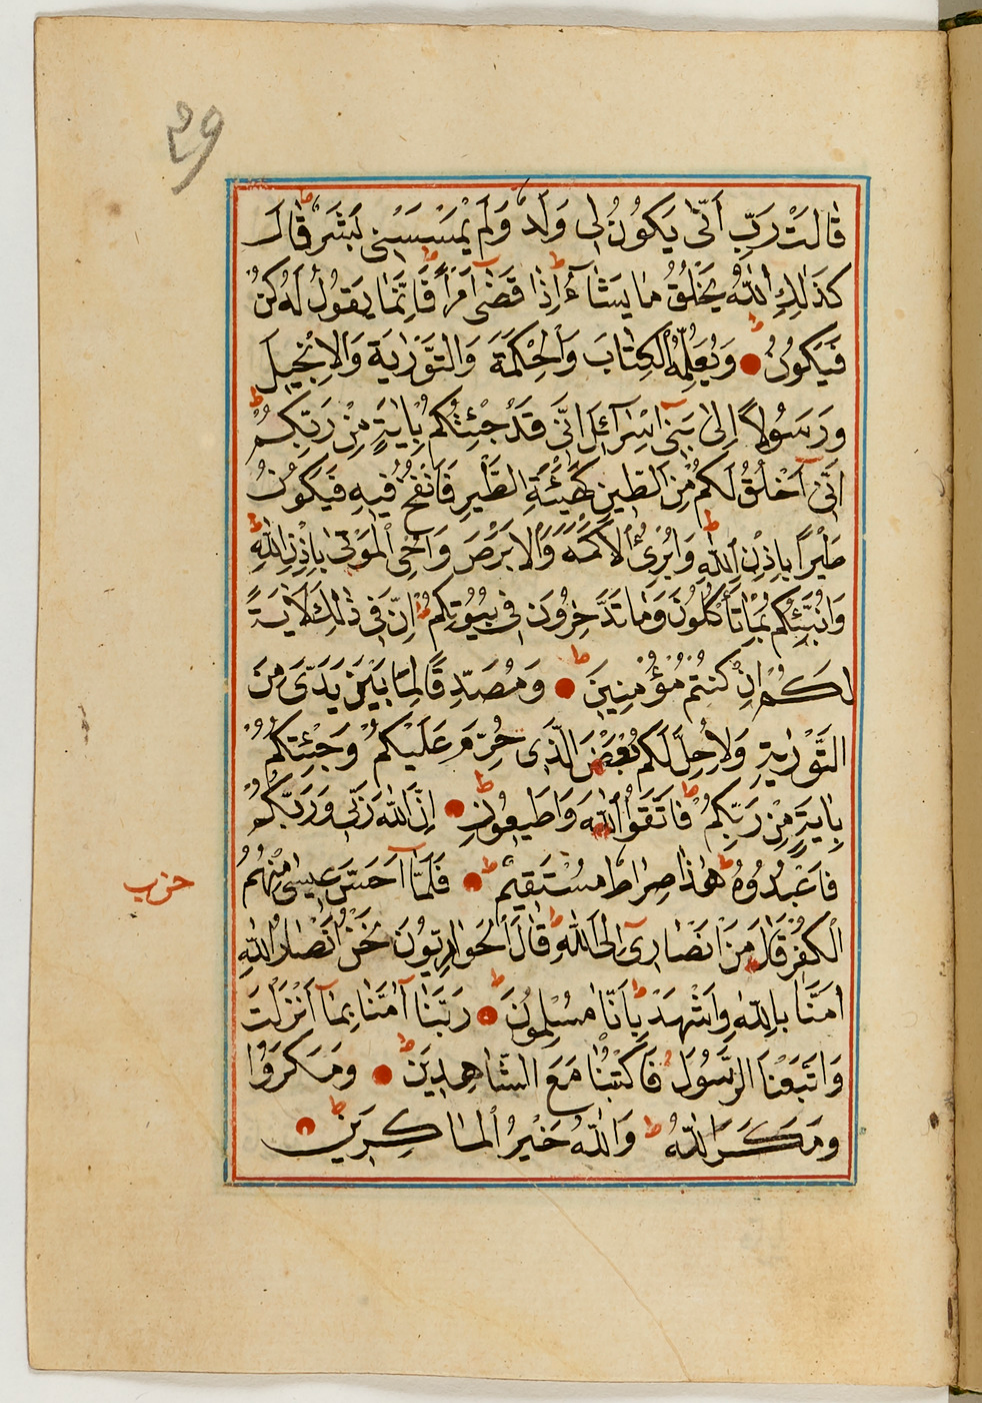 29
قَالَتْ رَبِّ اَنّٰى يَكُوْنُ لِى وَلَدٌ وَلَمْ يَمْسَسْنِى بَشَرٌ قَالَ
كَذٰلِكِ اللّٰهُ يَخْلُقُ مَا يَشَآءُ اِذَا قَضٰى اَمْرًا فَاِنَّمَا يَقُولُ لَهُ كُنْ
فَيَكُونُ وَيُعَلِّمُهُ الْكِتَابَ وَالْحِكْمَةَ وَالتَّوْرٰيةَ وَالْاِنْجِيلَ
وَرَسُولًا اِلٰى بَنِى اِسْرَآئِلَ اَنِّى قَدْ جِئْتُكُمْ بِاٰيَةٍ مِنْ رَبِّكُمْ
اَنِّى اَخْلُقُ لَكُمْ مِنَ الطِّينِ كَهَيْئَةِ الطَّيْرِ فَاَنْفُخُ فِيهِ فَيَكُونُ
طَيْرًا بِاِذْنِ اللّٰهِ وَاُبْرِئُ الْاَكْمَهَ وَالْاَبْرَصَ وَاُحْىِ الْمَوْتٰى بِاِذْنِ اللّٰهِ
وَاُنَبِّئُكُمْ بِمَا تَأْكُلُونَ وَمَا تَدَّخِرُونَ فِى بُيُوتِكُمْ اِنَّ فِى ذٰلِكَ لَاٰيَةً
لَكُمْ اِنْ كُنْتُمْ مُؤْمِنِينَ وَمُصَدِّقًا لِمَا بَيْنَ يَدَىَّ مِنَ
التَّوْرٰيةِ وَلِاُحِلَّ لَكُمْ بَعْضَ الَّذِى حُرِّمَ عَلَيْكُمْ وَجِئْتُكُمْ
بِاٰيَةٍ مِنْ رَبِّكُمْ فَاتَّقُوا اللّٰهَ وَاَطِيعُونِ اِنَّ اللّٰهَ رَبِّى وَرَبُّكُمْ
فَاعْبُدُوهُ هٰذَا صِرَاطٌ مُسْتَقِيمٌ فَلَمَّا اَحَسَّ عِيسٰى مِنْهُمُ
حزب
الْكُفْرَ قَالَ مَنْ اَنْصَارِىٓ اِلَى اللّٰهِ قَالَ الْحَوَارِيُّونَ نَحْنُ اَنْصَارُ اللّٰهِ
اٰمَنَّا بِاللّٰهِ وَاشْهَدْ بِاَنَّا مُسْلِمُونَ رَبَّنَا اٰمَنَّا بِمَآ اَنْزَلْتَ
وَاتَّبَعْنَا الرَّسُولَ فَاكْتُبْنَا مَعَ الشَّاهِدِينَ وَمَكَرُوا
وَمَكَرَ اللّٰهُ وَاللّٰهُ خَيْرُ الْمَاكِرِينَ